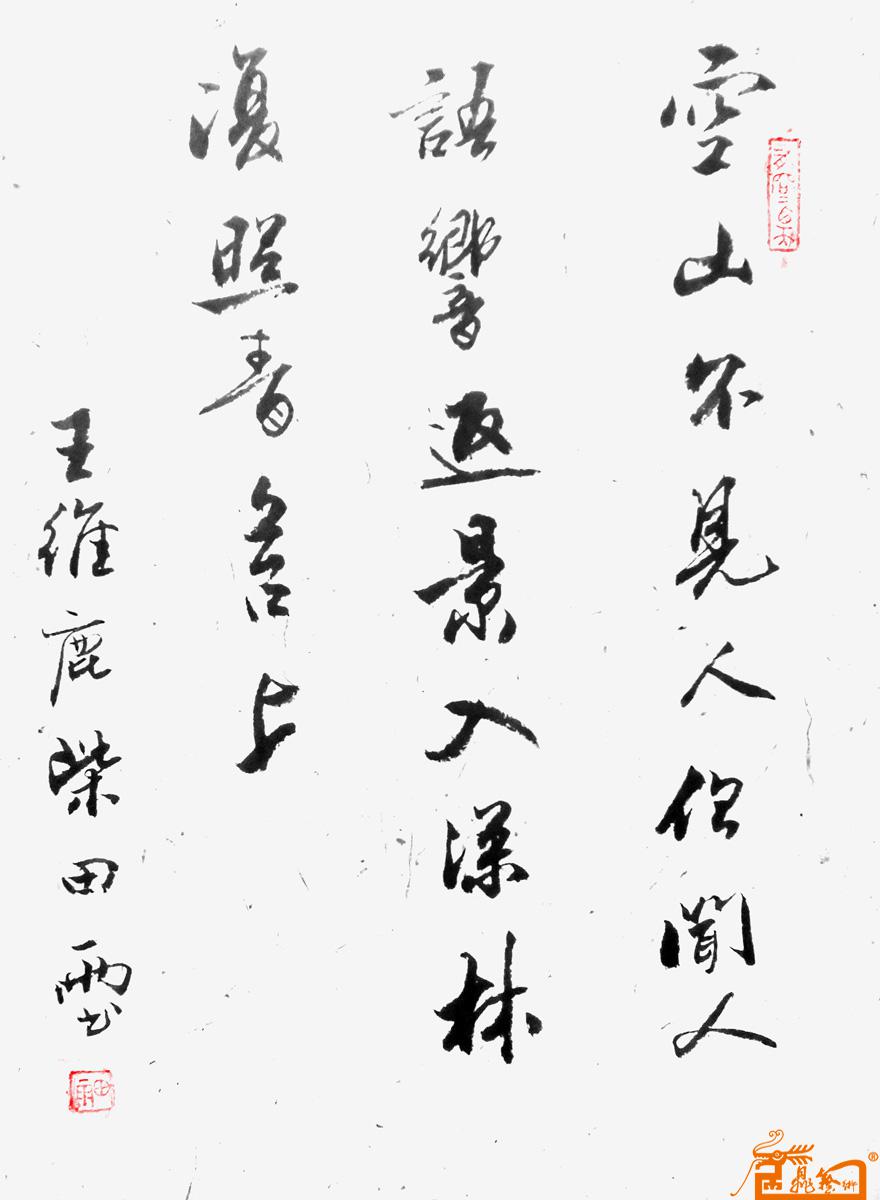 空山不見人但聞人
語響返景入深林
復照青苔上
王維鹿柴田雨书